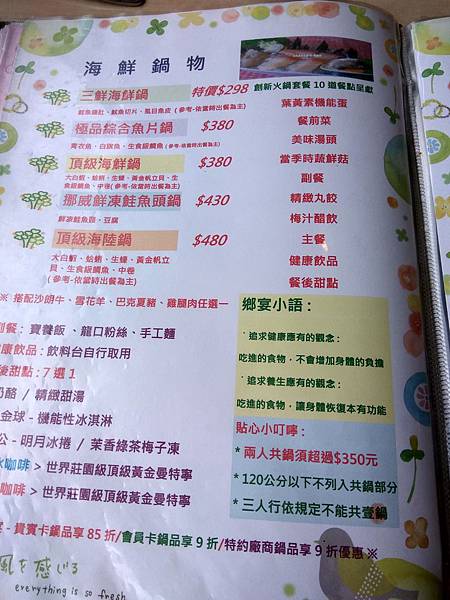 海鮮鍋物
三鮮海鮮鍋 特價$298
(參考-依當時出餐為主)
極品綜合魚片鍋 $380
青衣魚、白旗魚、生食級鯛魚(參考-依當時出餐為主)
頂級海鮮鍋 $380
大白蝦、蛤蜊、生蠔、黃金帆立貝、生
食級鯛魚、中卷(參考-依當時出餐為主)
挪威鮮凍鮭魚頭鍋 $430
鮮凍鮭魚頭、豆腐
頂級海陸鍋 $480
大白蝦、蛤蜊、生蠔、黃金帆立
貝、生食級鯛魚、中卷
(參考-依當時出餐為主)
※ 搭配沙朗牛、雪花羊、巴克夏豬、雞腿肉任選一
副餐: 寶養飯、龍口粉絲、手工麵
健康飲品: 飲料台自行取用
後甜點: 7 選 1
奶酪 / 精緻甜湯
金球 - 機能性冰淇淋
公 - 明月冰捲 / 茉香綠茶梅子凍
冰咖啡 > 世界莊園級頂級黃金曼特寧
咖啡 > 世界莊園級頂級黃金曼特寧
創新火鍋套餐 10 道餐點呈獻
葉黃素機能蛋
餐前菜
美味湯頭
當季時蔬鮮菇
副餐
精緻丸餃
梅汁醋飲
主餐
健康飲品
餐後甜點
鄉宴小語:
˙追求健康應有的觀念:
吃進的食物,不會增加身體的負擔
˙追求養生應有的觀念:
吃進的食物,讓身體恢復本有功能
貼心小叮嚀:
* 兩人共鍋須超過$350元
* 120公分以下不列入共鍋部分
* 三人行依規定不能共壹鍋
貴賓卡鍋品享 85 折/會員卡鍋品享 9 折/特約廠商鍋品享 9 折優惠 ※
風を感じる
everything is so fresh